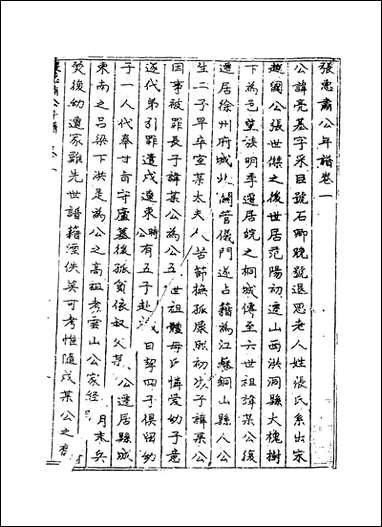 張惠肅公年譜卷一
公諱亮基字采臣號石卿晚號退思老人姓張氏系出宋
越國公張世傑之後世居范陽初遷山西洪洞縣大槐樹
下為邑望族明季遷居皖之桐城傳至六世祖諱某公復
遷居徐州府城北關管儀門遂占籍為江蘇銅山縣人公
生二子早卒室某太夫人苦節撫孤康熙初次子諱某公
因事被罪長子諱某公為公五世祖體母氏憐愛幼子意
遂代弟引罪遣戍遼東時公有五子赴戍日挈四子俱留幼
子一人代奉甘旨守廬墓後孤貧依叔父某公遷居縣城
東南之呂梁下洪是為公之高祖考雲山公家經 月末兵
燹後幼遭家難先世譜籍湮佚莫可考惟隨戍某公之